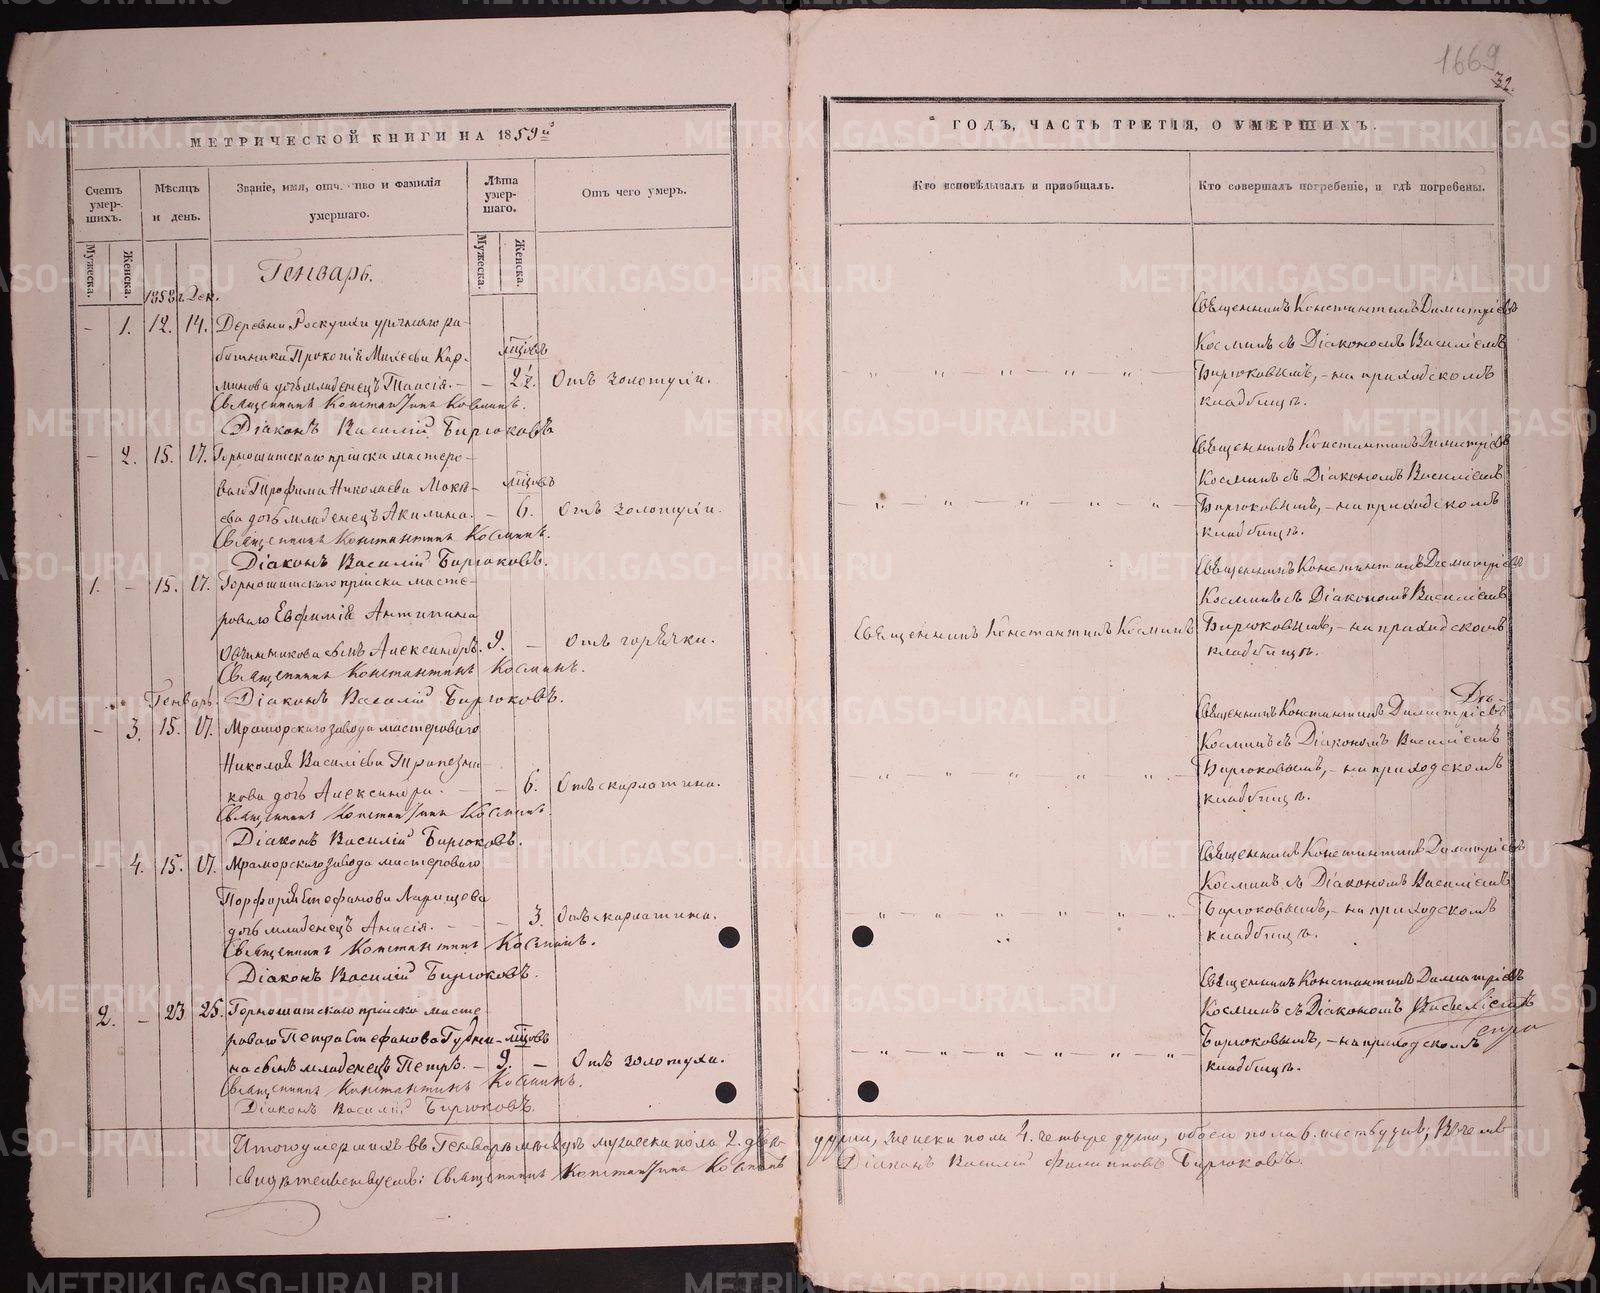 1669
32.
МЕТРИЧЕСКОЙ КНИГИ НА 1859й
ГОДЪ, ЧАСТЬ ТРЕТІЯ, О УМЕРШИХЪ.
Счетъ умер-шихъ.
Мѣсяцъ и день.
Званіе, имя, отч. ство и фамилія умершаго.
Лѣта умер-шаго.
Отъ чего умеръ.
Кто исповѣдывалъ и пріобщалъ.
Кто совершалъ погребеніе, и гдѣ погребены.
Мужеска.
Женска.
Мужеска.
Женска.
Генварь.
1858 г. Дек.
– 1. 12. 14. Деревни Роскухи урочнаго ра-
ботника Прокопія
мѣсцовъ
дочь младенецъ Таисія. – – 2½. Отъ золотухи.
Священникъ Константинъ Косминъ.
Діаконъ Василій Бирюковъ
Священникъ Константинъ Димитріевъ
Косминъ съ Діакономъ Василіемъ
Бирюковымъ, – на приходскомъ
кладбищѣ.
– 2. 15. 17. Горнощитскаго пріиска мастеро-
ваго Трофима Николаева Моке-
мѣсцовъ
ева дочь младенецъ Акилина. – 6. Отъ золотухи.
Священникъ Константинъ Косминъ.
Діаконъ Василій Бирюковъ.
Священникъ Константинъ Димитріевъ
Косминъ съ Діакономъ Василіемъ
Бирюковымъ, – на приходскомъ
кладбищѣ.
1. – 15. 17. Горнощитскаго пріиска масте-
роваго Евфимія Антипина
Овчинникова сынъ Александръ. 9. – Отъ горячки.
Священникъ Константинъ Косминъ.
Діаконъ Василій Бирюковъ.
Священникъ Константинъ Косминъ
Священникъ Константинъ Димитріевъ
Косминъ съ Діакономъ Василіемъ
Бирюковымъ, – на приходскомъ
кладбищѣ.
Генварь.
– 3. 15. 17. Мраморскаго завода мастероваго
Николая Василіева Трапезни-
кова дочь Александра. – – 6. Отъ скарлатина.
Священникъ Константинъ Косминъ.
Діаконъ Василій Бирюковъ.
Священникъ Константинъ Димитріевъ
Косминъ съ Діакономъ Василіемъ
Бирюковымъ, – на приходскомъ
кладбищѣ.
– 4. 15. 17. Мраморскаго завода мастероваго
Порфирія Стефанова Ларищева
дочь младенецъ Анисія. – – 3. Отъ скарлатина.
Священникъ Константинъ Косминъ.
Діаконъ Василій Бирюковъ.
Священникъ Константинъ Димитріевъ
Косминъ съ Діакономъ Василіемъ
Бирюковымъ, – на приходскомъ
кладбищѣ.
2. – 23 25. Горнощитскаго пріиска масте-
роваго Петра Стефанова мѣсцовъ
на сынъ младенецъ Петръ. – 9. – Отъ золотухи.
Священникъ Константинъ Косминъ.
Діаконъ Василій Бирюковъ.
Священникъ Константинъ Димитріевъ
Косминъ съ Діакономъ Василіемъ
Бирюковымъ, – на приходскомъ
кладбищѣ.
Итого умершихъ въ Генварѣ мѣсяцѣ мужеска пола 2. двѣ
души, женска пола 4. четыре души, обоего пола 6. шесть душъ; въ чемъ
свидѣтельствуемъ: Священникъ Константинъ Косминъ
Діаконъ Василій Филипповъ Бирюковъ.
METRIKI.GASO-URAL.RU